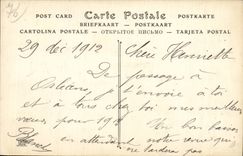 76
POST CARD Carte Postale POSTKARTE
BRIEFKAART POSTKAART
CARTOLINA POSTALE ОТКРЫТОЕ ПИСЬМО TARJETA POSTAL
29 Dec 1912
Chère Henriette
De passage à
Orléans, je t'envoie à toi
et à tous chez toi mes meilleurs
vœux pour 191
Un bon baiser
en attendant notre venue qui
ne tardera pas